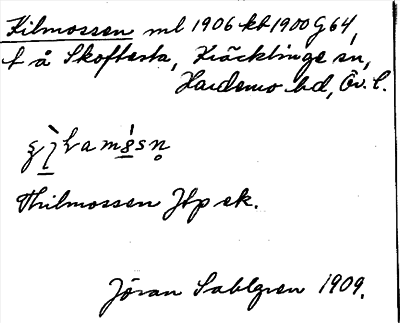 Kilmossen ml 1906 kb 1900 G64,
f å Skoftesta, Kräcklinge sn,
Hardemo hd, Ör. l.
Thilmossen Jtp ek.
Jöran Sahlgren 1909.